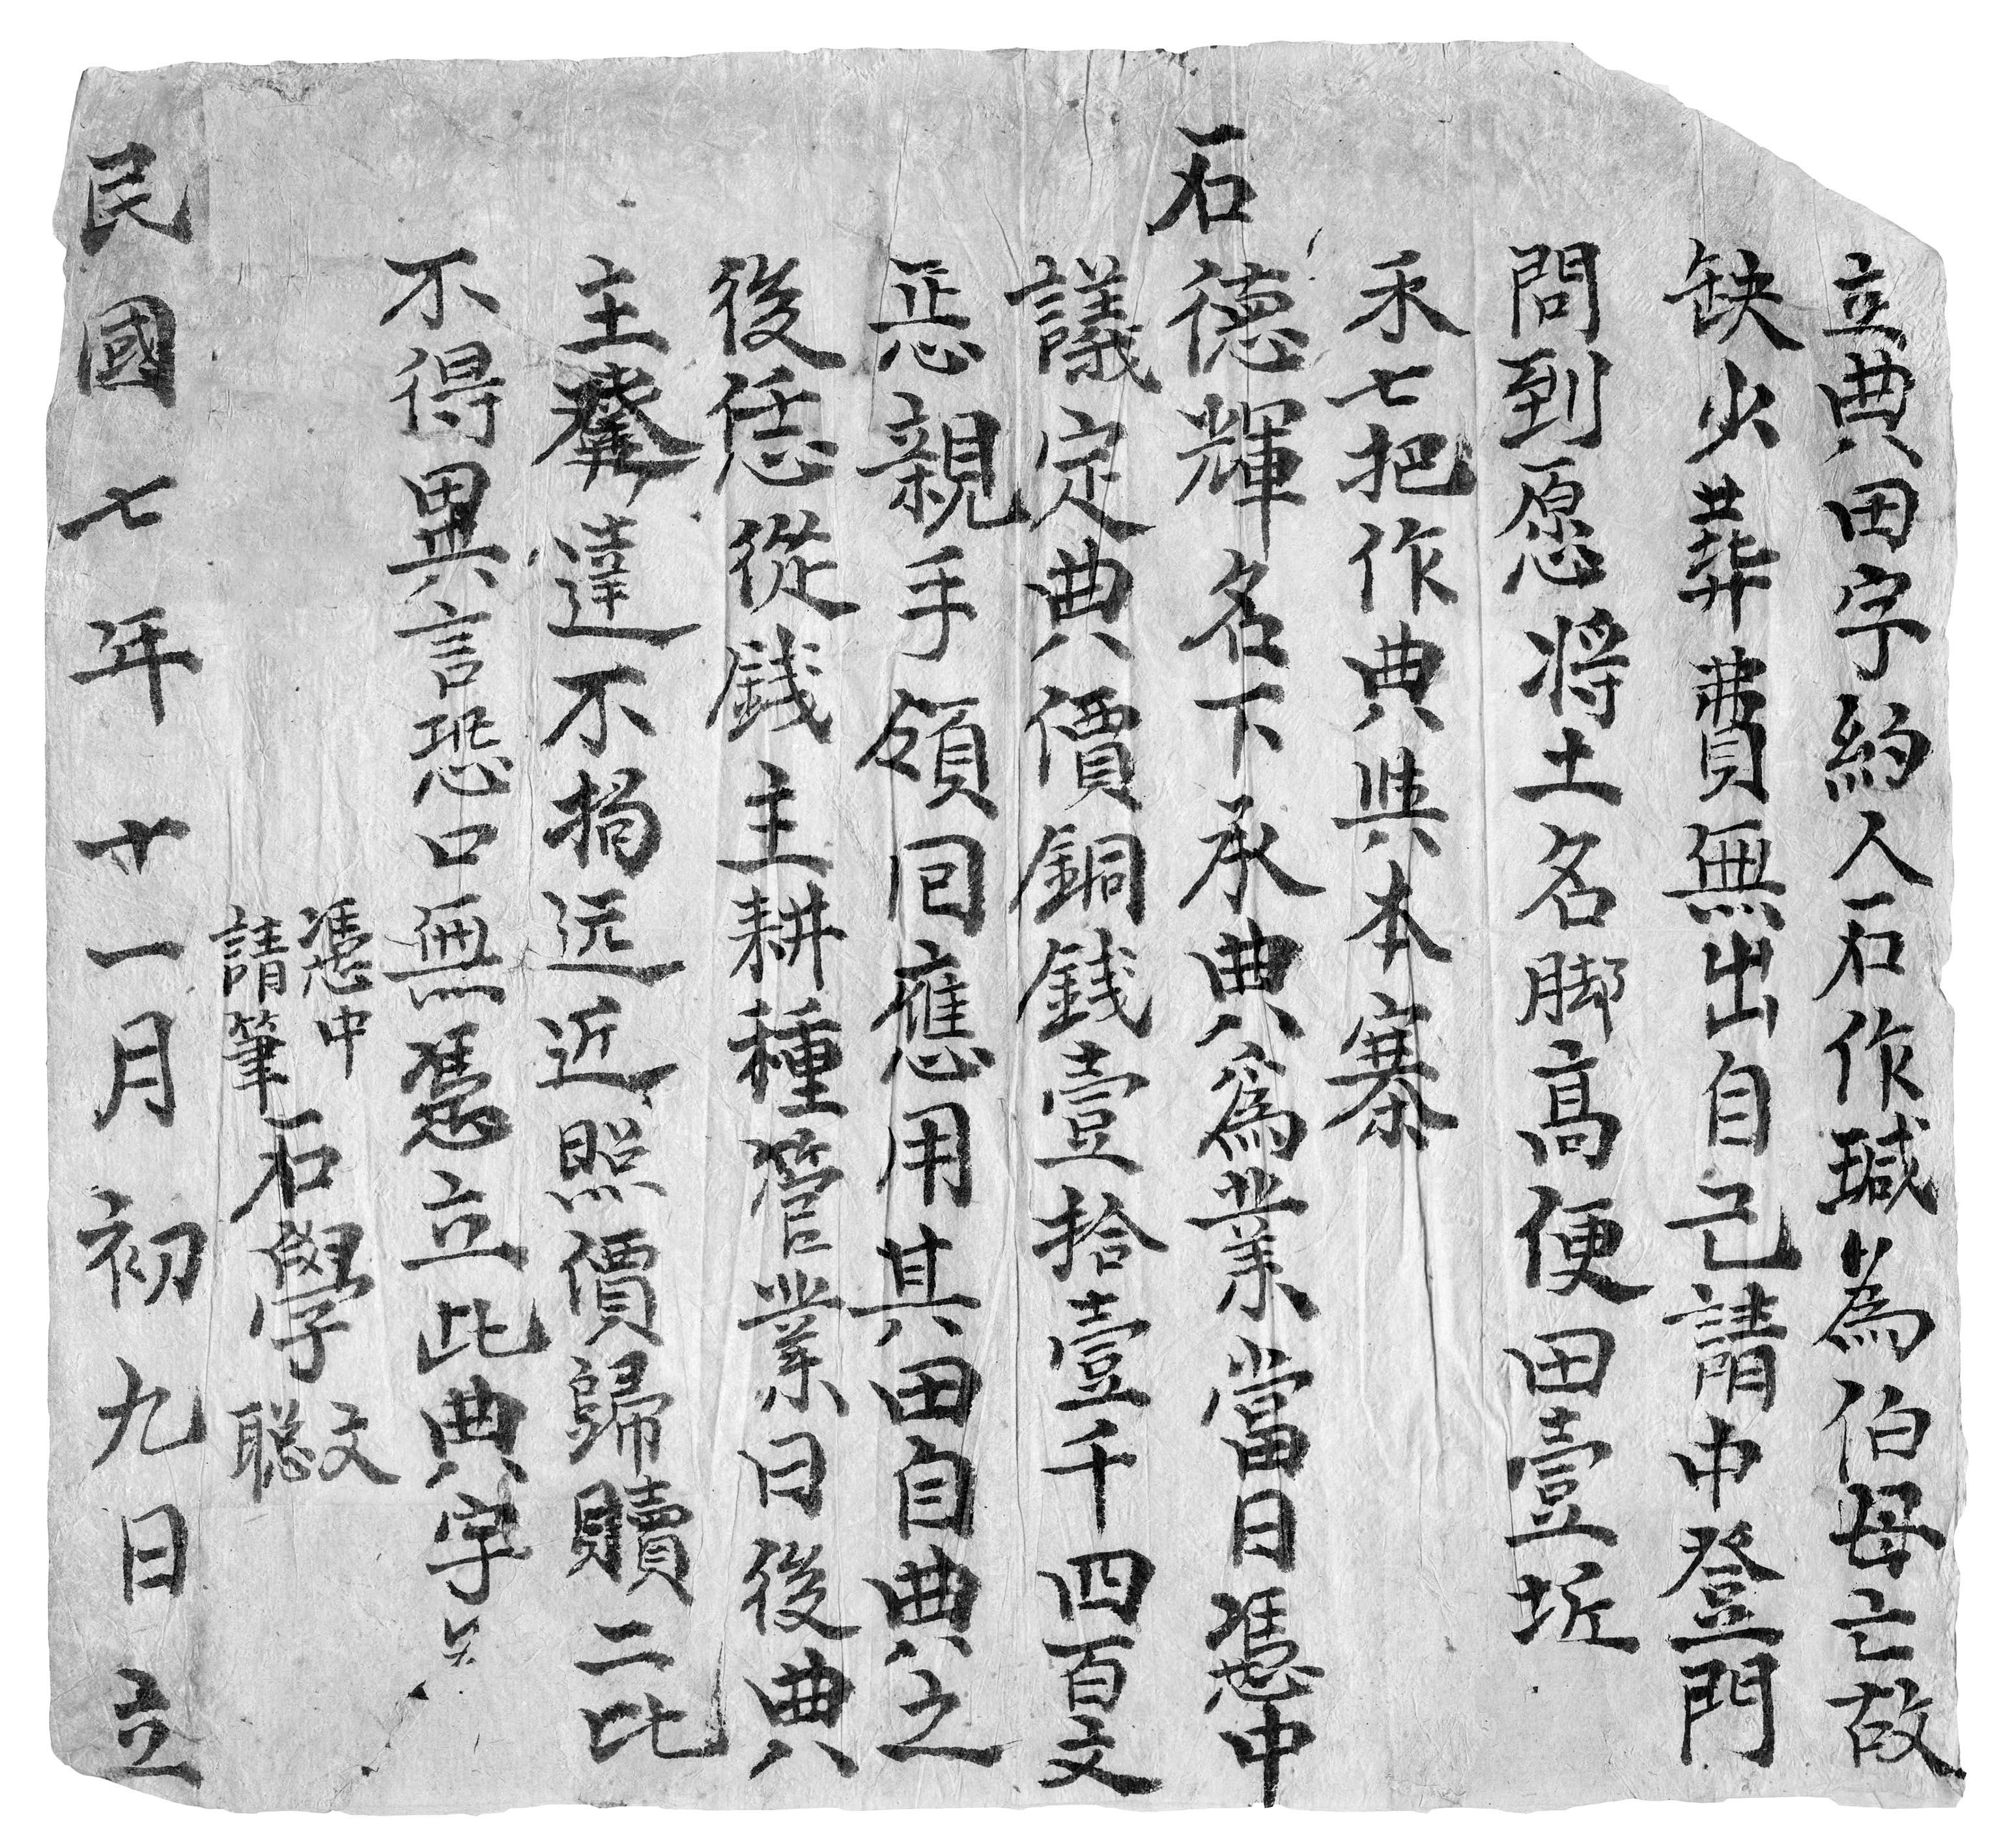 立典田字約人石作瑊為伯母亡故
缺少葬費無出自己請中登門
問到愿将土名脚高便田壹坵
禾七把作典與本寨
石德輝名下承典為業當日憑中
議定典價銅錢壹拾壹千四百文
親手領回應用其田自典之
後恁從錢主耕種管業日後典
主發達不揭远近照價歸贖二比
不得異言恐口無憑立此典字
憑中
請筆 石學文
聪
民國七年十一月初九日立